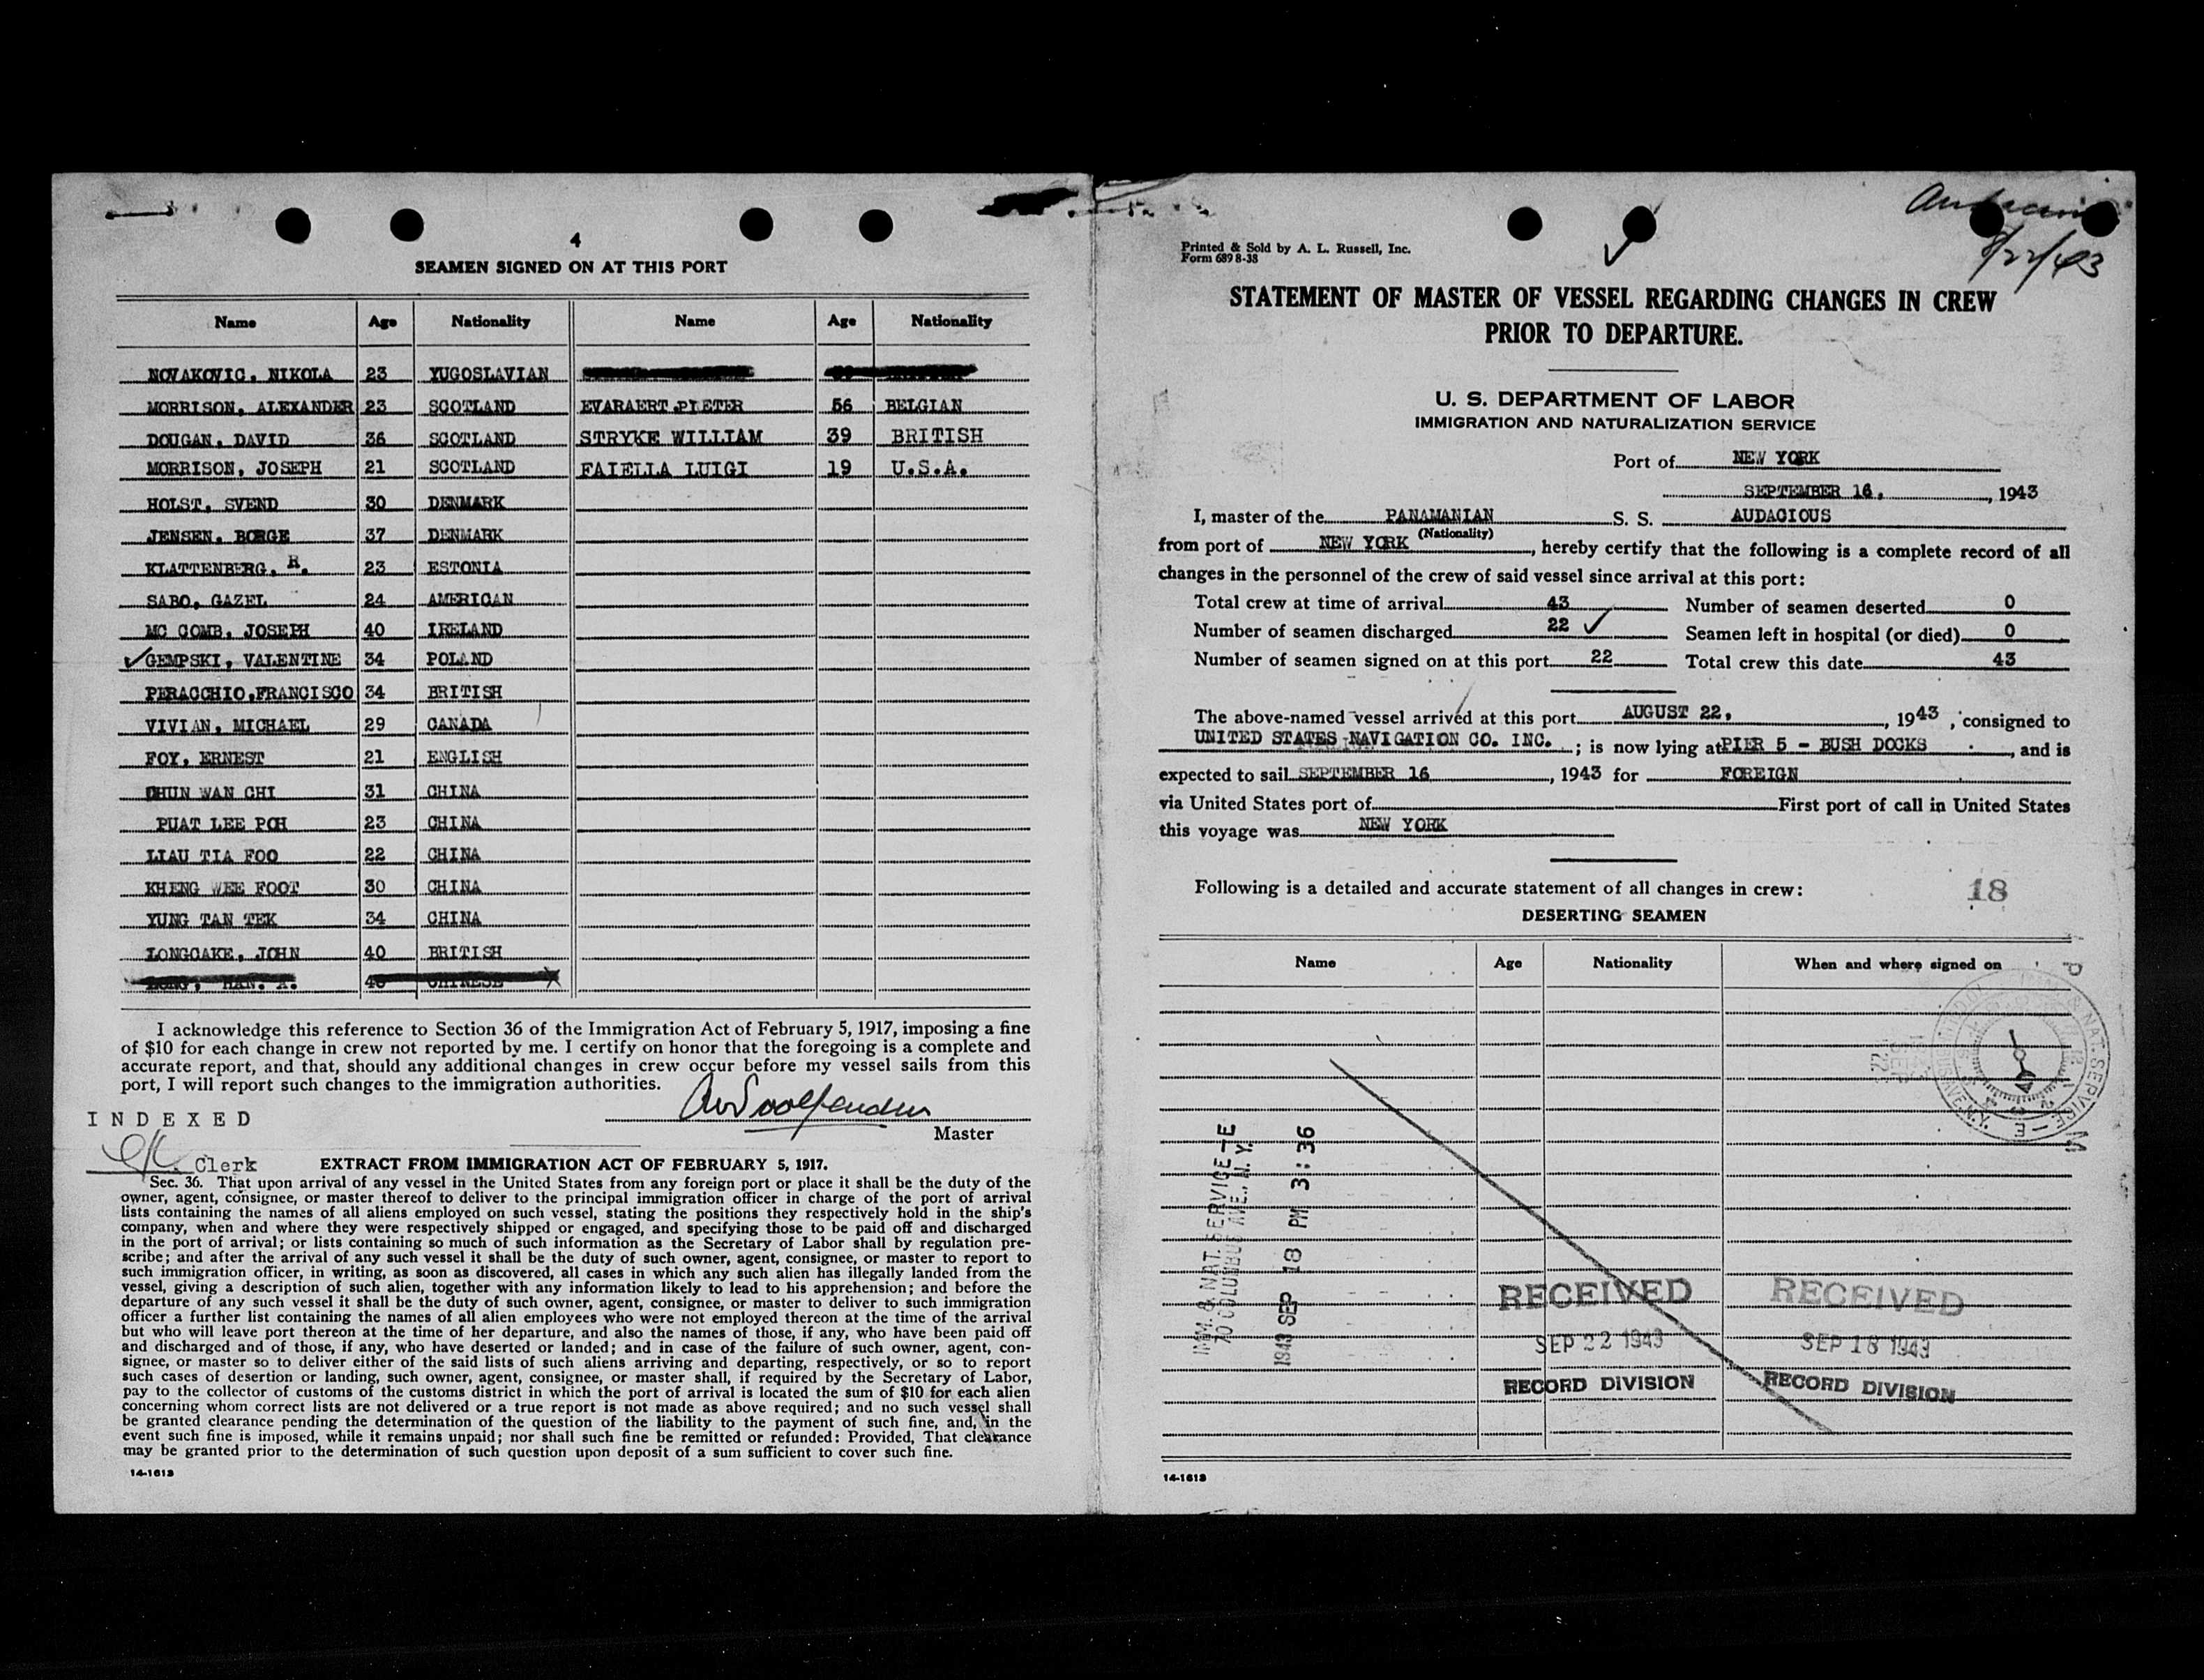 4
SEAMEN SIGNED ON AT THIS PORT
Name Age Nationality Name Age Nationality
NOVAKOVIC, NIKOLA 23 YUGOSLAVIAN
MORRISON, ALEXANDER 23 SCOTLAND EVARAERT PIETER 56 BELGIAN
DOUGAN, DAVID 36 SCOTLAND STRYKE WILLIAM 39 BRITISH
MORRISON, JOSEPH 21 SCOTLAND FAIELLA LUIGI 19 U.S.A.
HOLST, SVEND 30 DENMARK
JENSEN, BORGE 37 DENMARK
KLATTENBERG, R. 23 ESTONIA
SABO, GAZEL 24 AMERICAN
MC COMB, JOSEPH 40 IRELAND
GEMPSKI, VALENTINE 34 POLAND
PERACCHIO, FRANCISCO 34 BRITISH
VIVIAN, MICHAEL 29 CANADA
FOY, ERNEST 21 ENGLISH
CHUN WAN CHI 31 CHINA
PUAT LEE POH 23 CHINA
LIAU TIA FOO 22 CHINA
KHENG WEE FOOT 30 CHINA
YUNG TAN TEK 34 CHINA
LONGCAKE, JOHN 40 BRITISH
CHINESE
I acknowledge this reference to Section 36 of the Immigration Act of February 5, 1917, imposing a fine
of $10 for each change in crew not reported by me. I certify on honor that the foregoing is a complete and
accurate report, and that, should any additional changes in crew occur before my vessel sails from this
port, I will report such changes to the immigration authorities.
INDEXED
Master
Clerk
EXTRACT FROM IMMIGRATION ACT OF FEBRUARY 5, 1917.
Sec. 36. That upon arrival of any vessel in the United States from any foreign port or place it shall be the duty of the
owner, agent, consignee, or master thereof to deliver to the principal immigration officer in charge of the port of arrival
lists containing the names of all aliens employed on such vessel, stating the positions they respectively hold in the ship's
company, when and where they were respectively shipped or engaged, and specifying those to be paid off and discharged
in the port of arrival; or lists containing so much of such information as the Secretary of Labor shall by regulation pre-
scribe; and after the arrival of any such vessel it shall be the duty of such owner, agent, consignee, or master to report to
such immigration officer, in writing, as soon as discovered, all cases in which any such alien has illegally landed from the
vessel, giving a description of such alien, together with any information likely to lead to his apprehension; and before the
departure of any such vessel it shall be the duty of such owner, agent, consignee, or master to deliver to such immigration
officer a further list containing the names of all alien employees who were not employed thereon at the time of the arrival
but who will leave port thereon at the time of her departure, and also the names of those, if any, who have been paid off
and discharged and of those, if any, who have deserted or landed; and in case of the failure of such owner, agent, con-
signee, or master so to deliver either of the said lists of such aliens arriving and departing, respectively, or so to report
such cases of desertion or landing, such owner, agent, consignee, or master shall, if required by the Secretary of Labor,
pay to the collector of customs of the customs district in which the port of arrival is located the sum of $10 for each alien
concerning whom correct lists are not delivered or a true report is not made as above required; and no such vessel shall
be granted clearance pending the determination of the question of the liability to the payment of such fine, and, in the
event such fine is imposed, while it remains unpaid; nor shall such fine be remitted or refunded: Provided, That clearance
may be granted prior to the determination of such question upon deposit of a sum sufficient to cover such fine.
14-1613
8/22/43
Printed & Sold by A. L. Russell, Inc.
Form 689 8-38
STATEMENT OF MASTER OF VESSEL REGARDING CHANGES IN CREW
PRIOR TO DEPARTURE.
U. S. DEPARTMENT OF LABOR
IMMIGRATION AND NATURALIZATION SERVICE
Port of NEW YORK
SEPTEMBER 16, , 1943
I, master of the PANAMANIAN S. S. AUDACIOUS
(Nationality)
from port of NEW YORK , hereby certify that the following is a complete record of all
changes in the personnel of the crew of said vessel since arrival at this port:
Total crew at time of arrival 43 Number of seamen deserted 0
Number of seamen discharged 22 Seamen left in hospital (or died) 0
Number of seamen signed on at this port 22 Total crew this date 43
The above-named vessel arrived at this port AUGUST 22, , 1943 , consigned to
UNITED STATES NAVIGATION CO. INC. ; is now lying at PIER 5 - BUSH DOCKS , and is
expected to sail SEPTEMBER 16 , 1943 for FOREIGN
via United States port of First port of call in United States
this voyage was NEW YORK
Following is a detailed and accurate statement of all changes in crew: 18
DESERTING SEAMEN
Name Age Nationality When and where signed on
IMM. & NAT. SERVICE-E
70 COLUMBUS AVE., N. Y.
1943 SEP 18 PM 3:36
RECEIVED
SEP 22 1943
RECORD DIVISION
RECEIVED
SEP 18 1943
RECORD DIVISION
14-1613